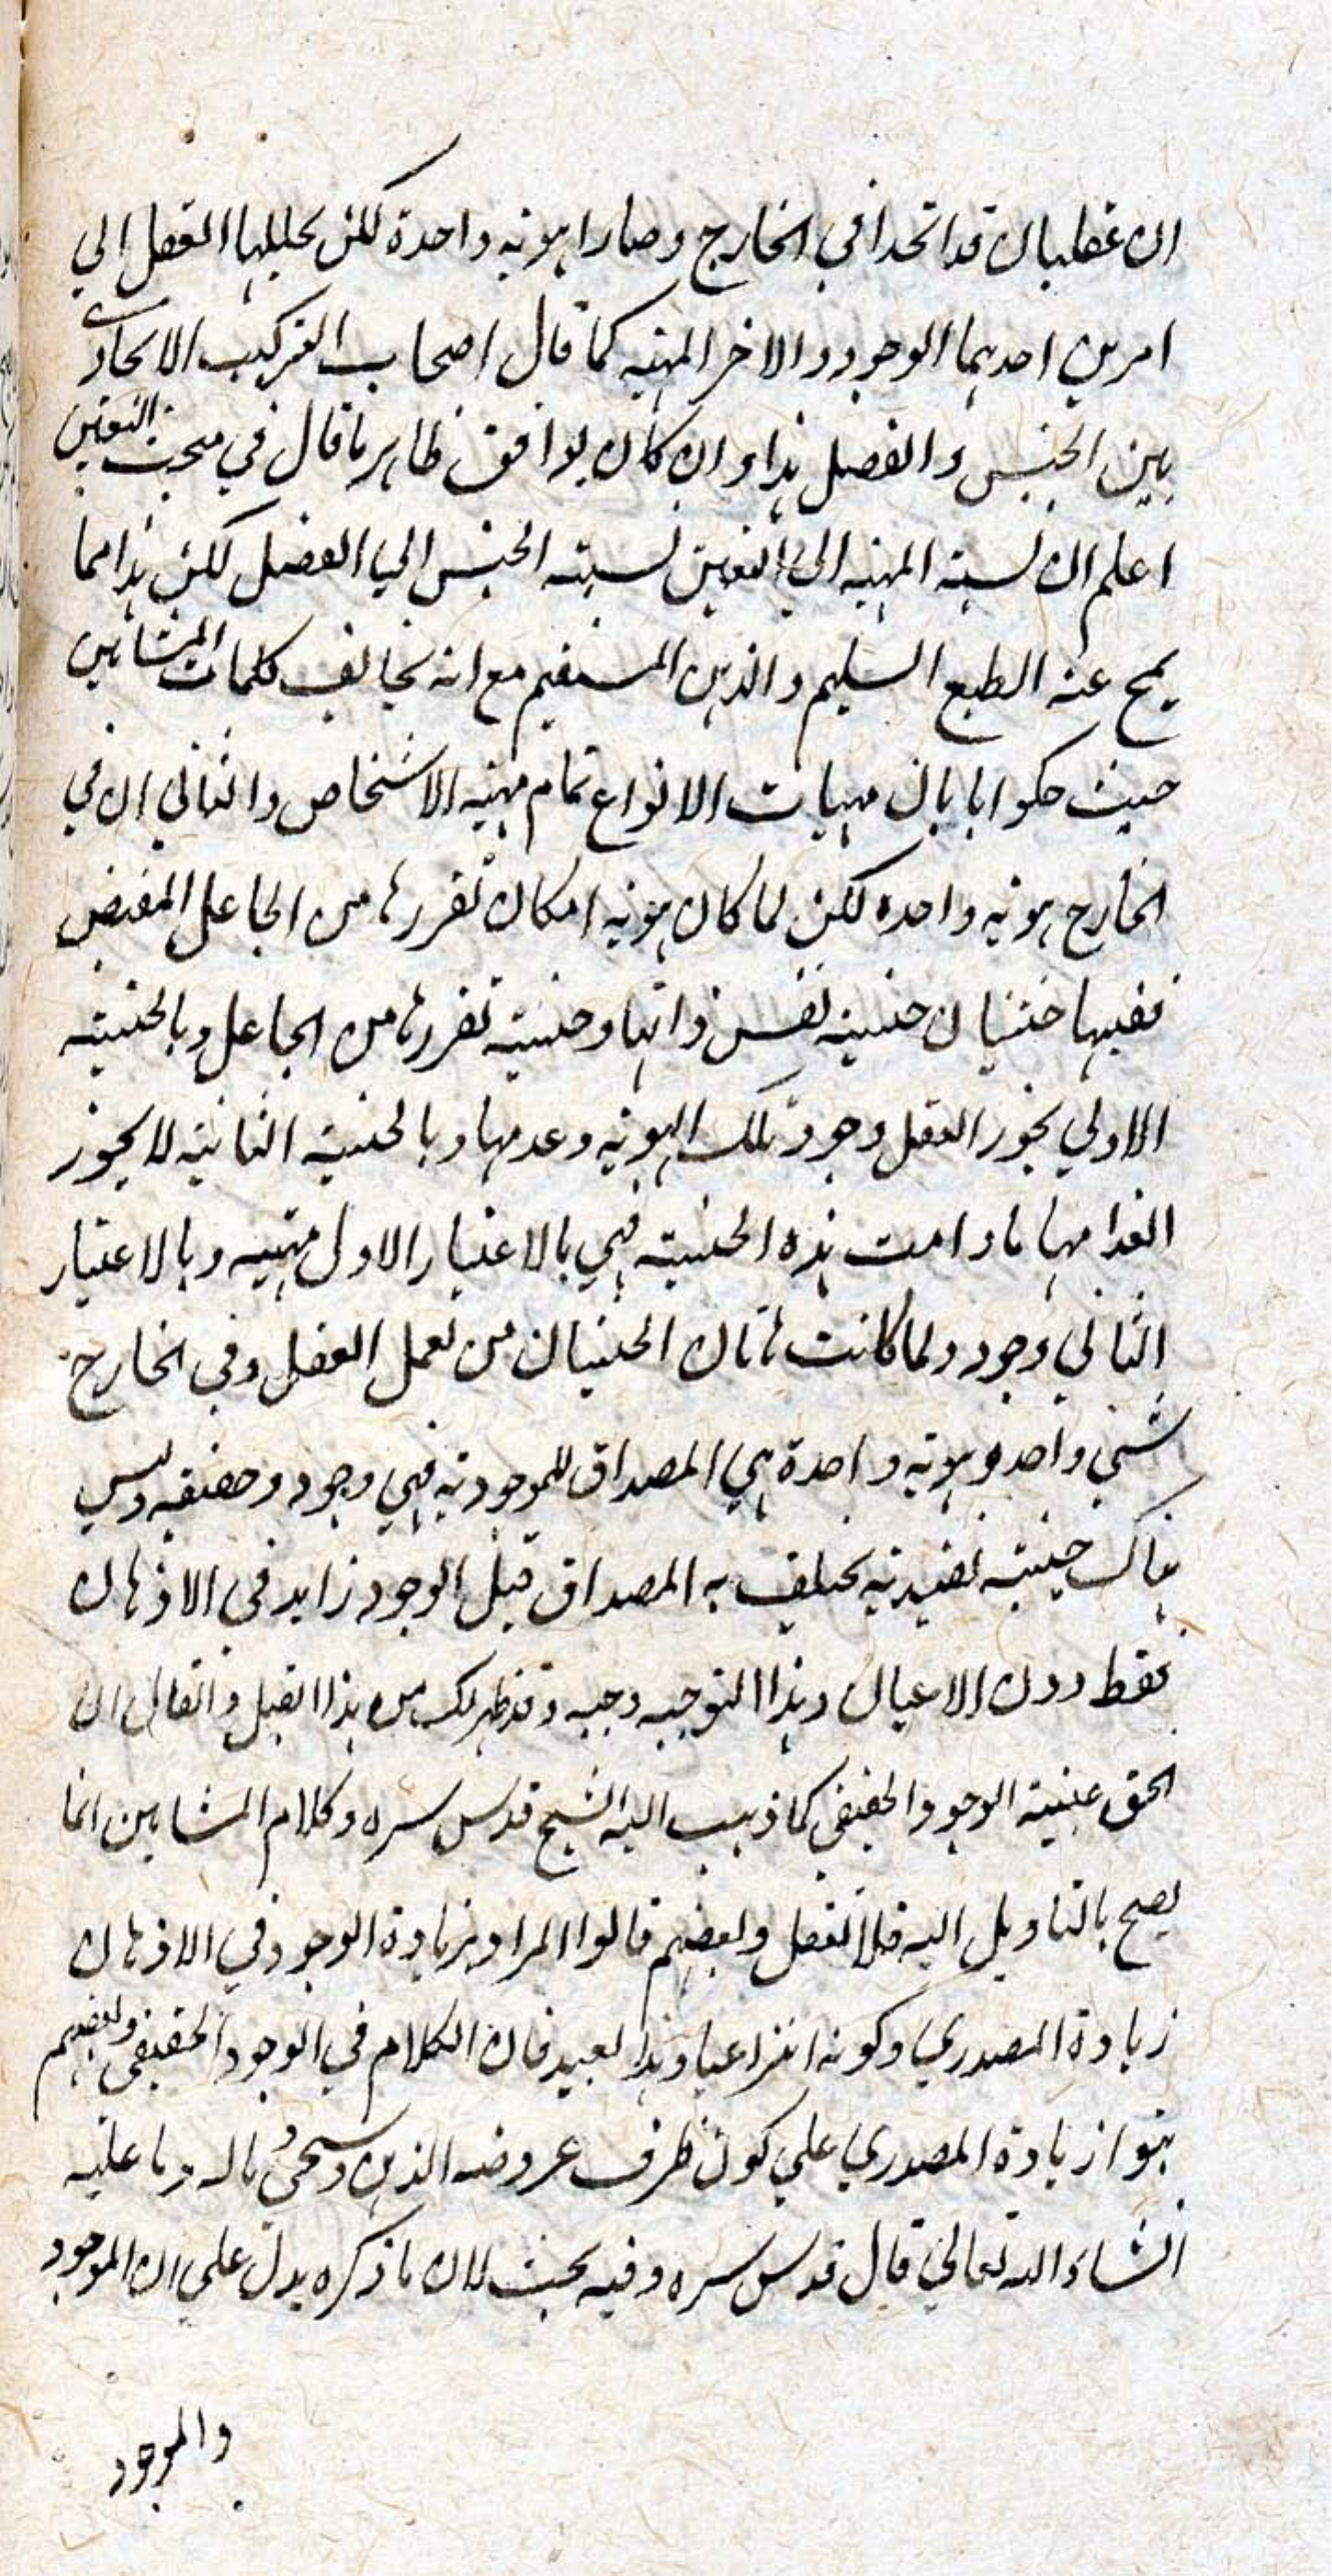 ان عقليان قد اتحدا في الخارج وصارا هوية واحدة لكن يحللها العقل الي
امرين احديهما الوجود والاخر المهية كما قال اصحاب التركيب الاتحادي
بين الجنس والفصل هذا وان كان يوافق ظاهر ما قال في مبحث التعين
اعلم ان نسبة المهية الي التعين نسبة الجنس الي الفصل لكن هذا مما
يمج عنه الطبع السليم والذهن المستقيم مع انه يخالف كلمات المشايين
حيث حكموا بان مهيات الانواع تمام مهية الاشخاص والثاني ان في
الخارج هوية واحدة لكن لما كان هوية امكان تقررها من الجاعل المفيض
ففيها حيثيتان حيثية نفس ذاتها وحيثية تقررها من الجاعل وبالحيثية
الاولي يجوز العقل وجود تلك الهوية وعدمها وبالحيثية الثانية لا يجوز
انعدامها ما دامت هذه الحيثية فهي بالاعتبار الاول مهية وبالاعتبار
الثاني وجود ولما كانت هاتان الحيثيتان من تعمل العقل وفي الخارج
شئي واحد وهوية واحدة هي المصداق للموجودية فهي وجود وحقيقة وليس
هناك حيثية تقييدية يختلف به المصداق قيل الوجود زايد في الاذهان
فقط دون الاعيان وهذا التوجيه وجيه وقد ظهر لك من هذا القيل والقال ان
الحق عينية الوجود الحقيقي كما ذهب اليه الشيخ قدس سره وكلام المشايين انما
يصح بالتاويل اليه فلا تغفل وبعضهم قالوا المراد بزيادة الوجود في الاذهان
زيادة المصدري وكونه انتزاعيا وهذا بعيد فان الكلام في الوجود الحقيقي وبعضهم
بنوا زيادة المصدري علي كون ظرف عروضه الذهن وسيجئ ما له وما عليه
انشاء الله تعالي قال قدس سره وفيه بحث لان ما ذكره يدل علي ان الموجود
والموجود